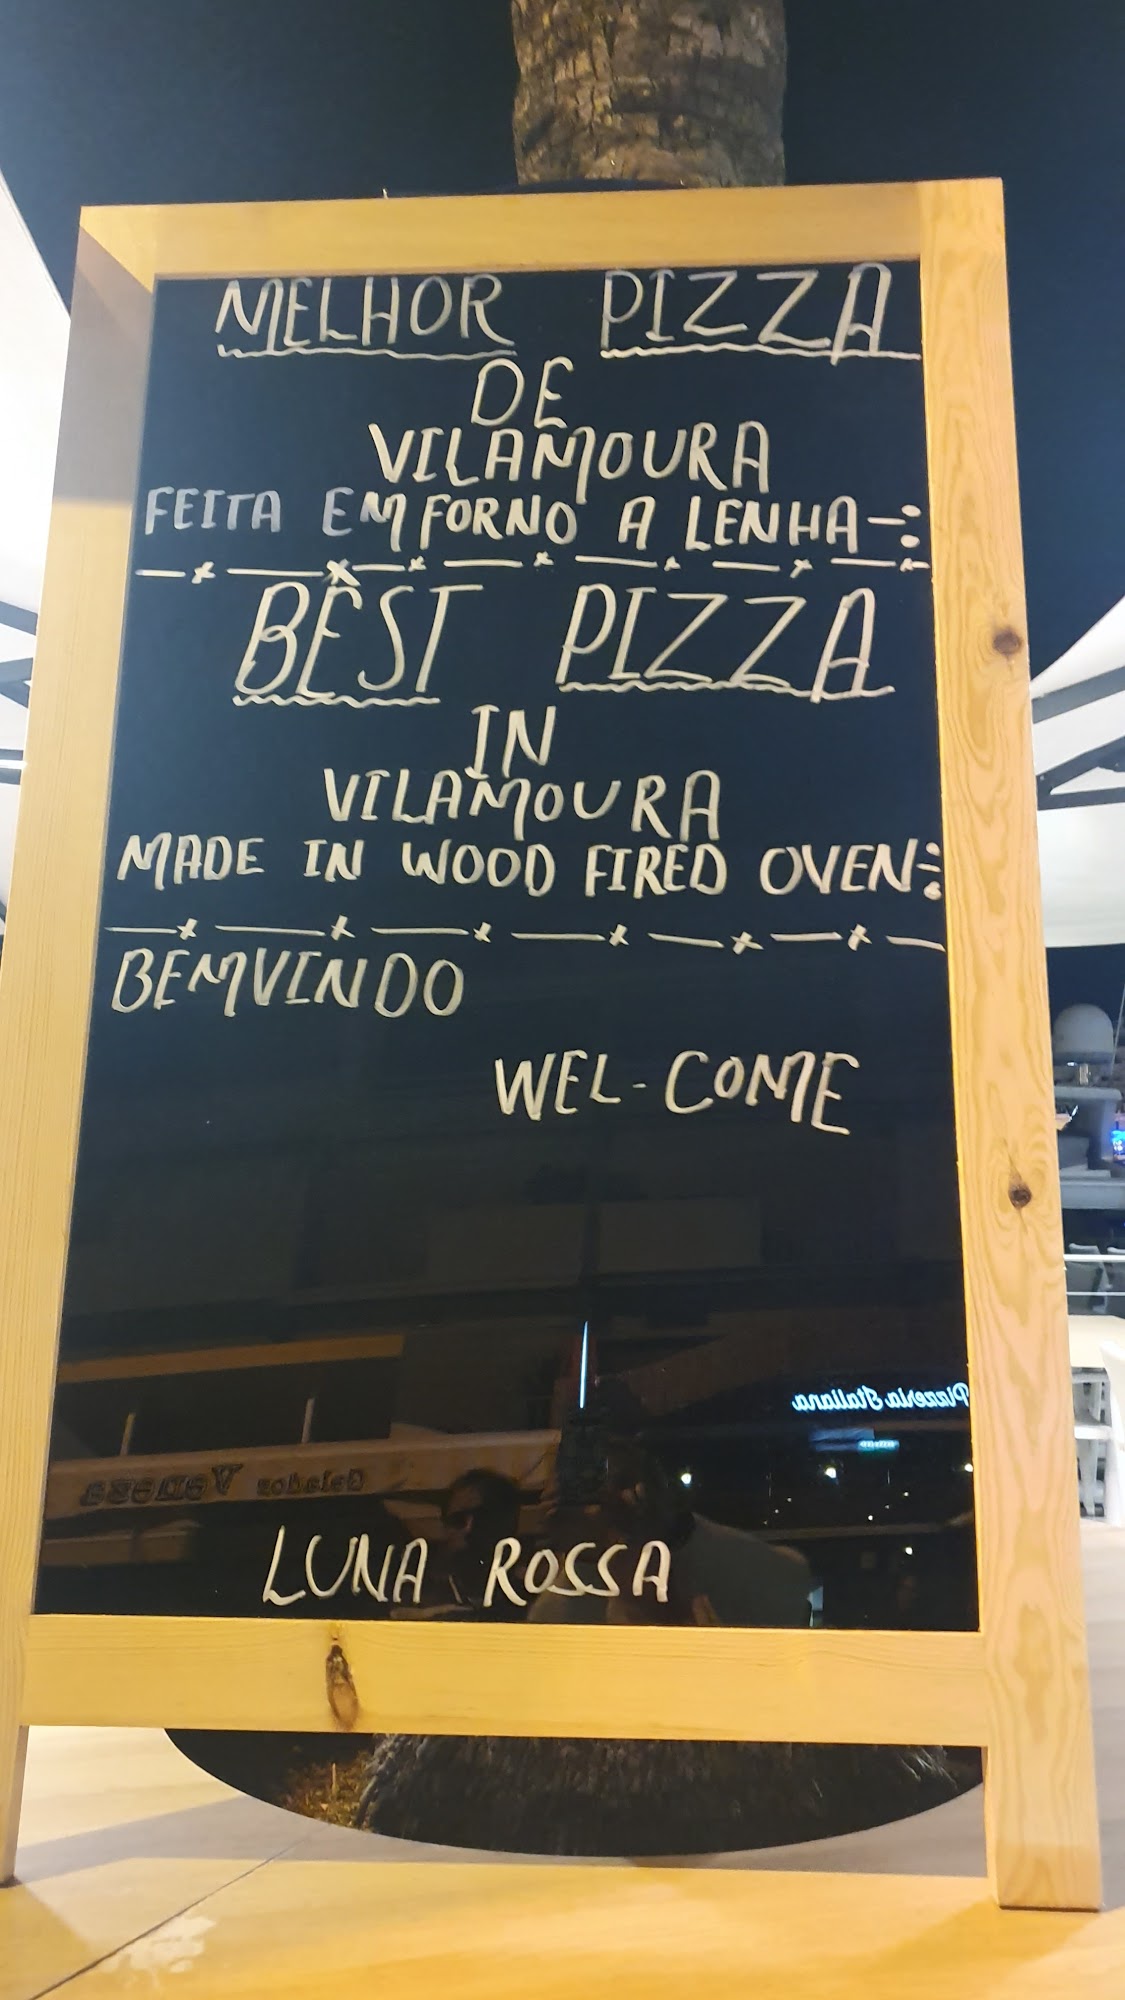 MELHOR PIZZA
DE
VILAMOURA
FEITA EM FORNO A LENHA
BEST PIZZA
IN
VILAMOURA
MADE IN WOOD FIRED OVEN
BEMVINDO
WEL-COME
Pizzeria Italiana
Gelados Veneza
LUNA ROSSA